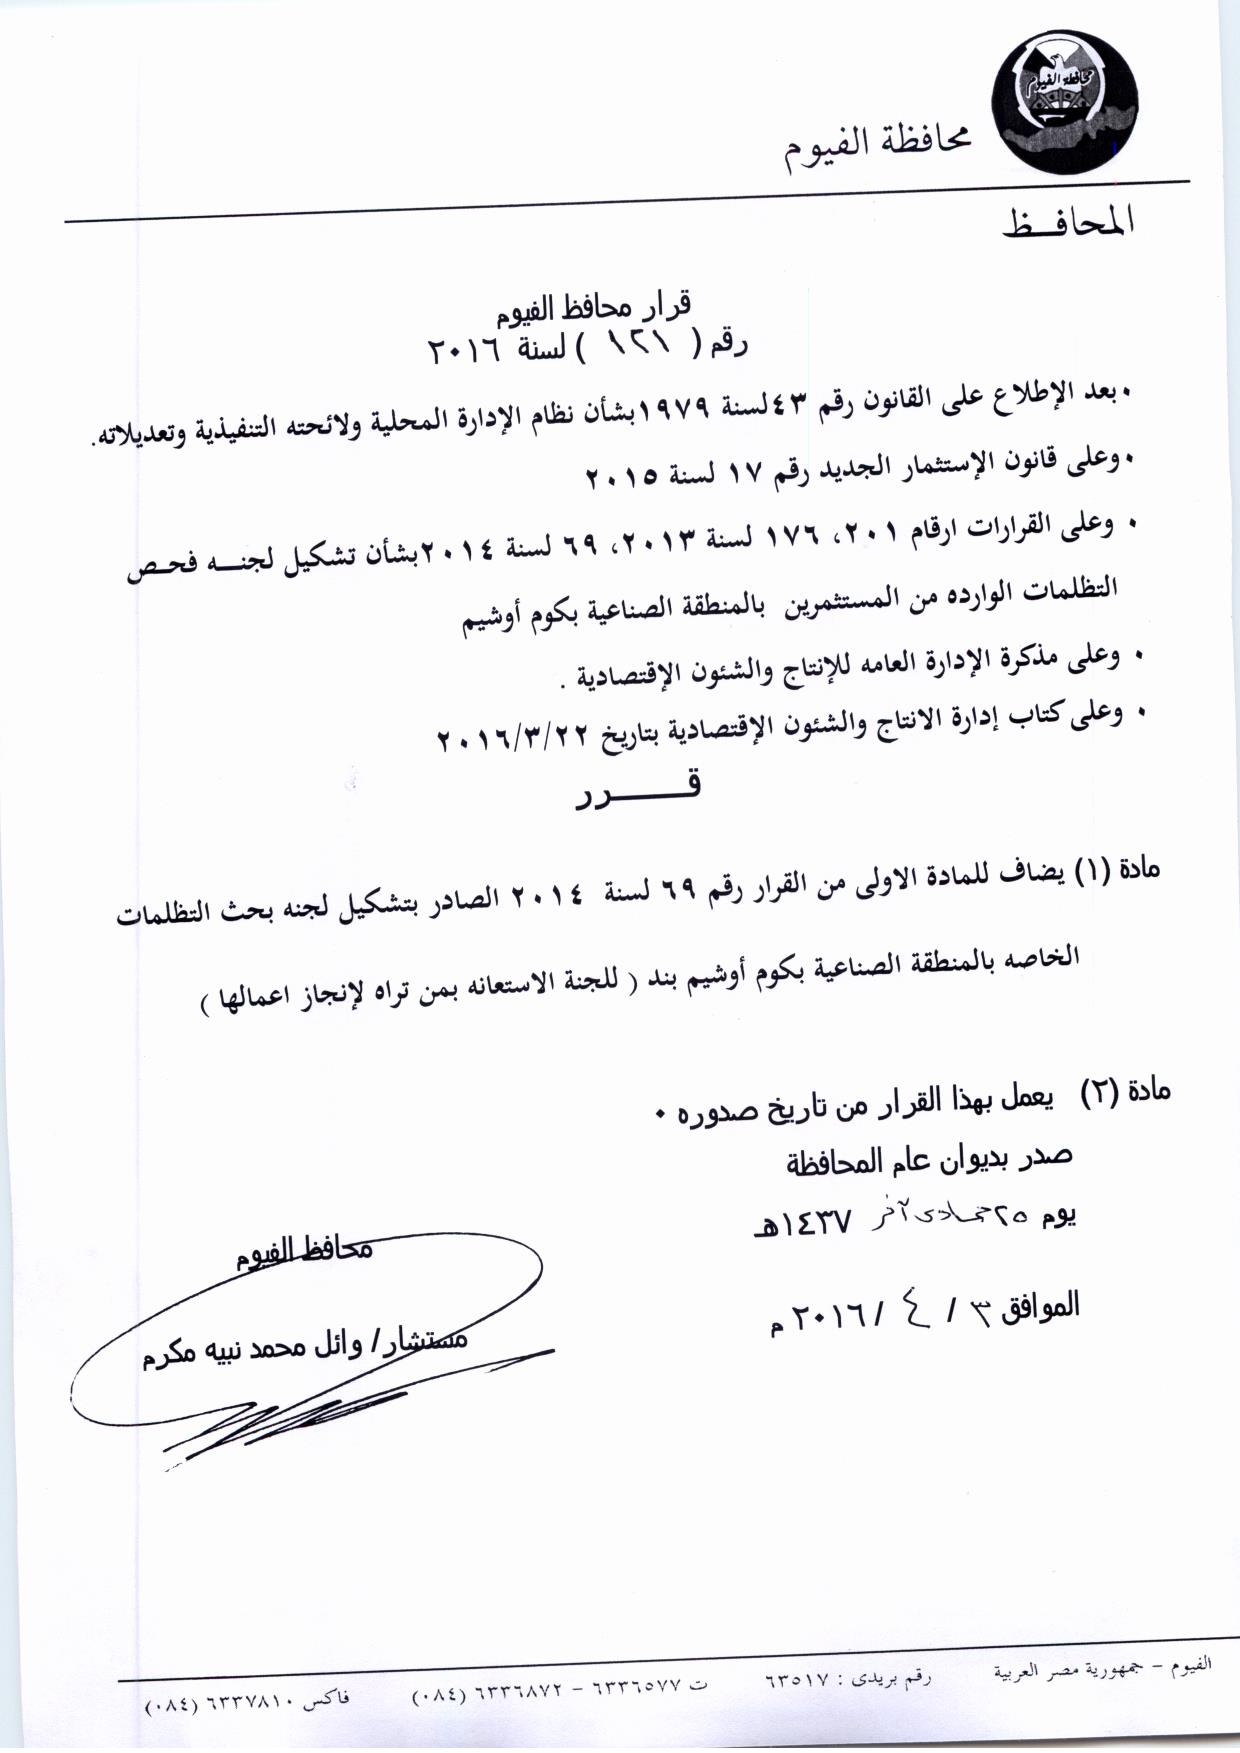 محافظة الفيوم
محافظة الفيوم
المحافـــظ
قرار محافظ الفيوم
رقم ( ١٢١ ) لسنة ٢٠١٦
• بعد الإطلاع على القانون رقم ٤٣ لسنة ١٩٧٩ بشأن نظام الإدارة المحلية ولائحته التنفيذية وتعديلاته.
• وعلى قانون الإستثمار الجديد رقم ١٧ لسنة ٢٠١٥
• وعلى القرارات ارقام ٢٠١، ١٧٦ لسنة ٢٠١٣، ٦٩ لسنة ٢٠١٤ بشأن تشكيل لجنـــه فحـص
التظلمات الوارده من المستثمرين بالمنطقة الصناعية بكوم أوشيم
• وعلى مذكرة الإدارة العامه للإنتاج والشئون الإقتصادية .
• وعلى كتاب إدارة الانتاج والشئون الإقتصادية بتاريخ ٢٠١٦/٣/٢٢
قــــــرر
مادة (١) يضاف للمادة الاولى من القرار رقم ٦٩ لسنة ٢٠١٤ الصادر بتشكيل لجنه بحث التظلمات
الخاصه بالمنطقة الصناعية بكوم أوشيم بند ( للجنة الاستعانه بمن تراه لإنجاز اعمالها )
مادة (٢) يعمل بهذا القرار من تاريخ صدوره •
صدر بديوان عام المحافظة
يوم ٢٥ جمادى آخر ١٤٣٧هـ
الموافق ٣ / ٤ / ٢٠١٦ م
محافظ الفيوم
مستشار/ وائل محمد نبيه مكرم
الفيوم – جمهورية مصر العربية رقم بريدى : ٦٣٥١٧ ت ٦٣٣٦٥٧٧ – ٦٣٣٦٨٧٢ (٠٨٤) فاكس ٦٣٣٧٨١٠ (٠٨٤)